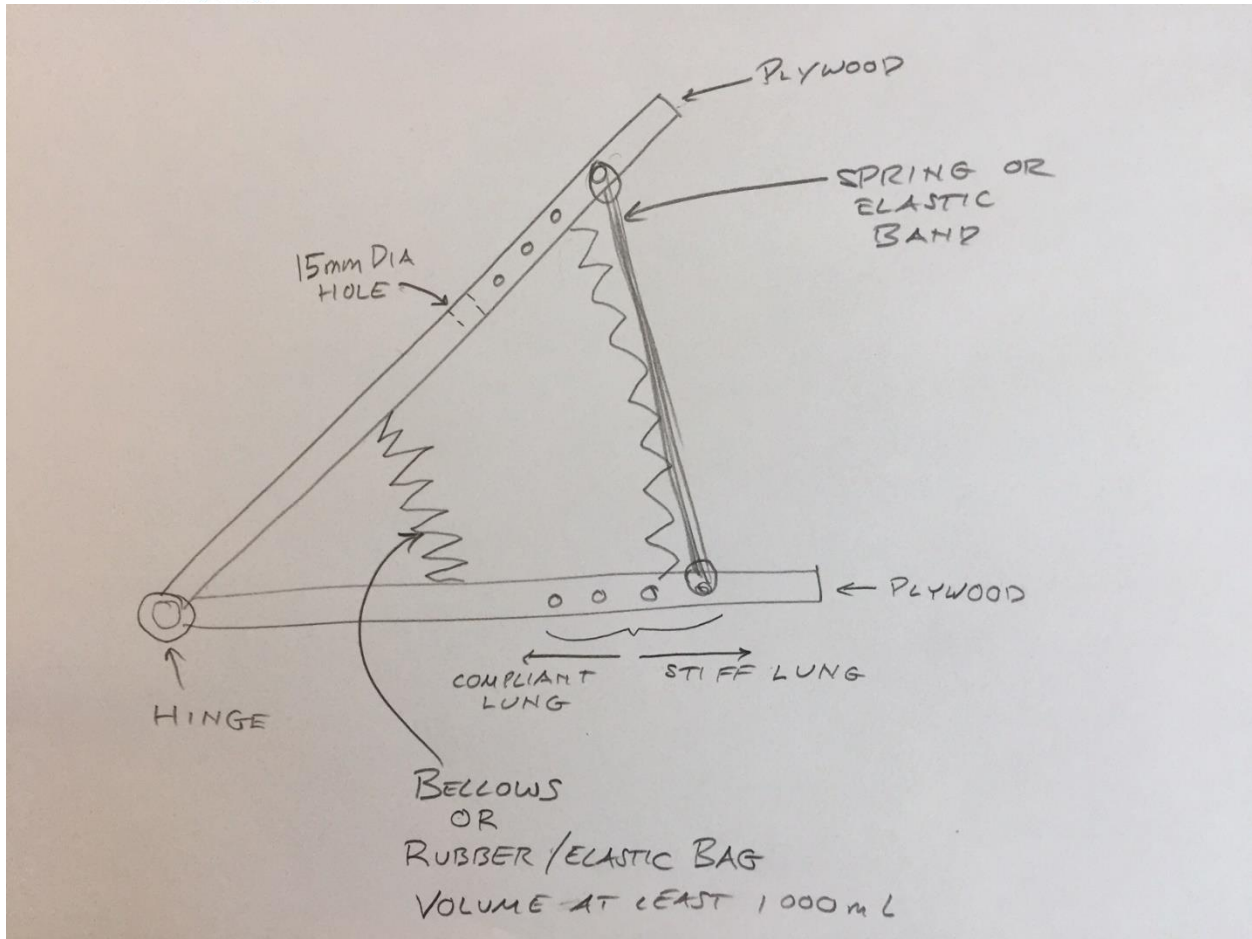 PLYWOOD
SPRING OR
ELASTIC
BAND
15mm DIA
HOLE
PLYWOOD
COMPLIANT
LUNG
STIFF LUNG
HINGE
BELLOWS
OR
RUBBER/ELASTIC BAG
VOLUME AT LEAST 1000mL